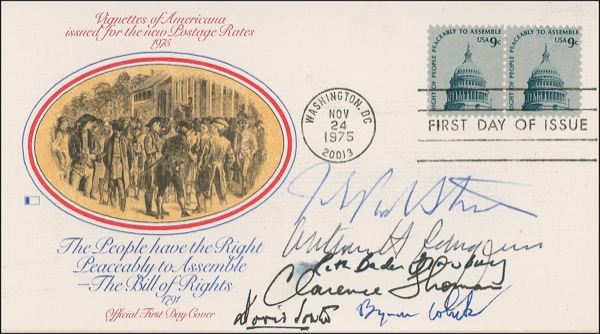 Vignettes of Americana
issued for the new Postage Rates
1975
RIGHT OF PEOPLE PEACEABLY TO ASSEMBLE
USA 9c
RIGHT OF PEOPLE PEACEABLY TO ASSEMBLE
USA 9c
WASHINGTON, DC
NOV
24
1975
20013
FIRST DAY OF ISSUE
The People have the Right
Peaceably to Assemble
—The Bill of Rights
1791
Official First Day Cover
Ruth Bader Ginsburg
Clarence Thomas